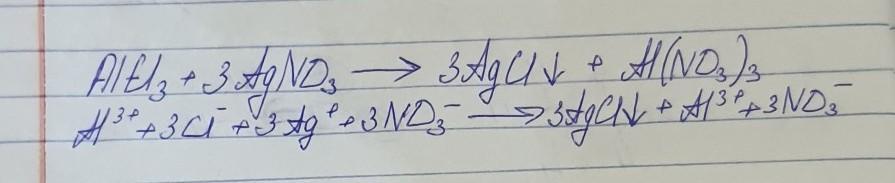 AlCl₃ + 3AgNO₃ → 3AgCl↓ + Al(NO₃)₃
Al³⁺ + 3Cl⁻ + 3Ag⁺ + 3NO₃⁻ → 3AgCl↓ + Al³⁺ + 3NO₃⁻